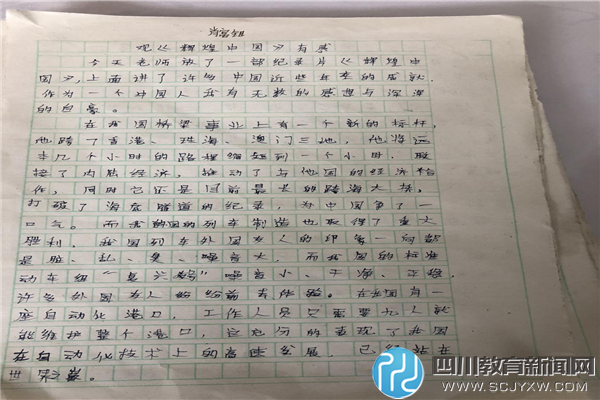 观《辉煌中国》有感
今天老师放了一部纪录片《辉煌中
国》,上面讲了许多中国近些年来的成就,
作为一个中国人我有无数的感想与深深
的自豪。
在我国桥梁事业上有一个新的标杆,
他跨了香港、珠海、澳门三地,他将远
来几个小时的路程缩短到一个小时,联
接了内陆经济,推动了与他国的经济合
作,同时它还是目前最长的跨海大桥,
打破了海底隧道的纪录,为中国争了一
口气。而我国的列车制造也取得了重大
胜利,我国列车外国友人的印象一向都
是脏、乱、臭、噪音大,而我国的标准
动车组“复兴号”噪音小、干净、正稳,
许多外国友人纷纷前来体验。在我国有一
座自动化港口,工作人员只需要九人就
能维护整个港口,这充分的表现了我国
在自动化技术上的高速发展,已经站在
世界之巅。
四川教育新闻网
WWW.SCJYXW.COM